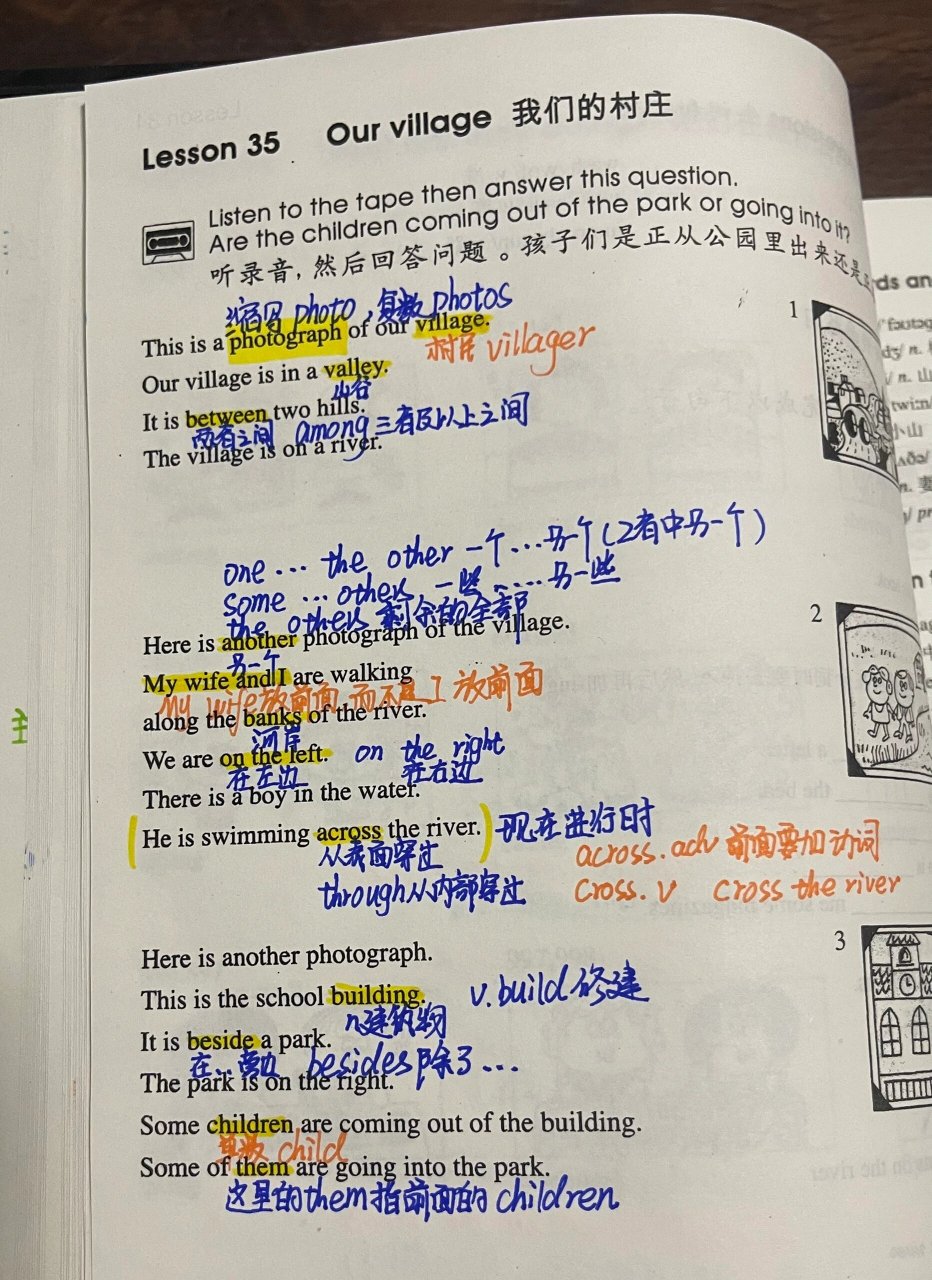 Lesson 35 Our village 我们的村庄
Listen to the tape then answer this question.
Are the children coming out of the park or going into it?
听录音，然后回答问题。孩子们是正从公园里出来还是
缩写 photo，复数 photos
This is a photograph of our village.
村民 villager
Our village is in a valley.
山谷
It is between two hills.
两者之间 among 三者及以上之间
The village is on a river.
one … the other 一个…另一个（2者中另一个）
some … others 一些……另一些
the others 剩余的全部
Here is another photograph of the village.
另一个
My wife and I are walking
My wife放前面而不是I放前面
along the banks of the river.
河岸
We are on the left. on the right
在左边 在右边
There is a boy in the water.
He is swimming across the river. 现在进行时
从表面穿过 across. adv 前面要加动词
through从内部穿过 cross. v cross the river
Here is another photograph.
This is the school building. v. build 修建
n建筑物
It is beside a park.
在…旁边 besides 除了…
The park is on the right.
Some children are coming out of the building.
单数 child
Some of them are going into the park.
这里的them指前面的 children
1
2
3
主